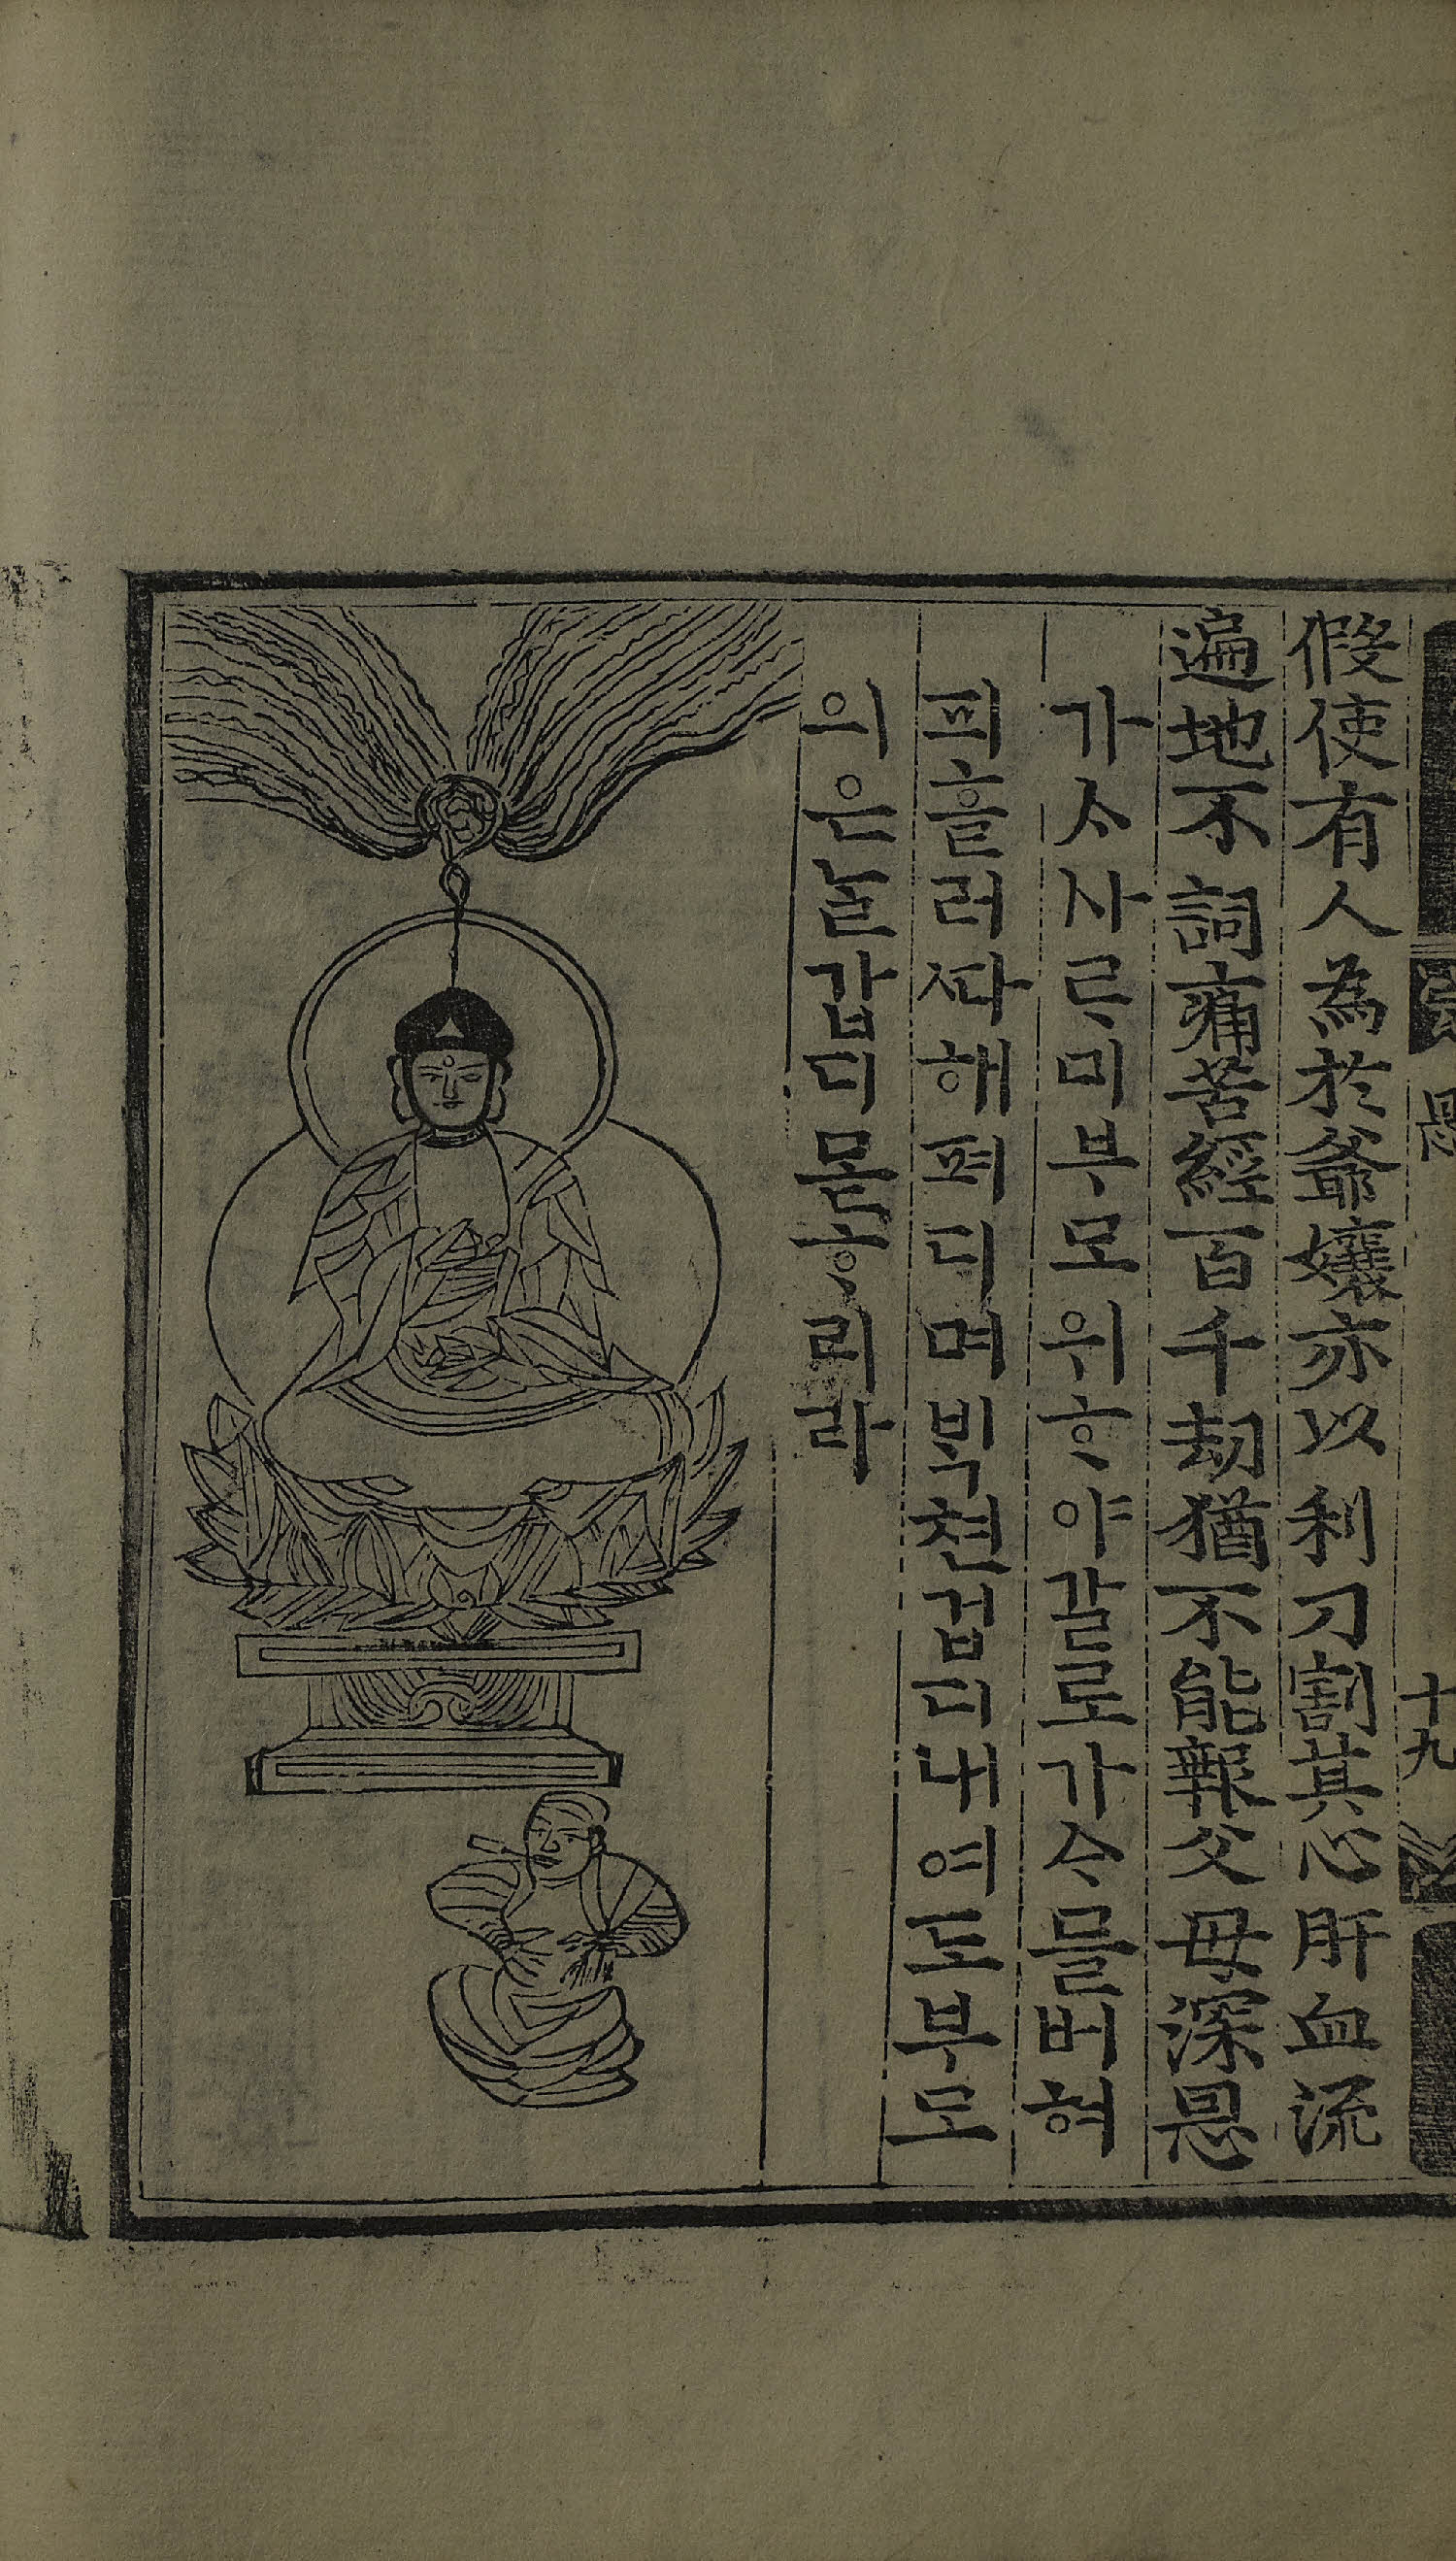 假使有人為於爺孃亦以利刀割其心肝血流
遍地不詞痛苦經百千劫猶不能報父母深恩
가ᄉᆞ사ᄅᆞ미부모위ᄒᆞ야갈로가ᄉᆞ믈버혀
피흘러ᄯᅡ해펴디며ᄇᆡᆨ쳔겁디내여도부모
의은늘갑디몯ᄒᆞ리라
十九